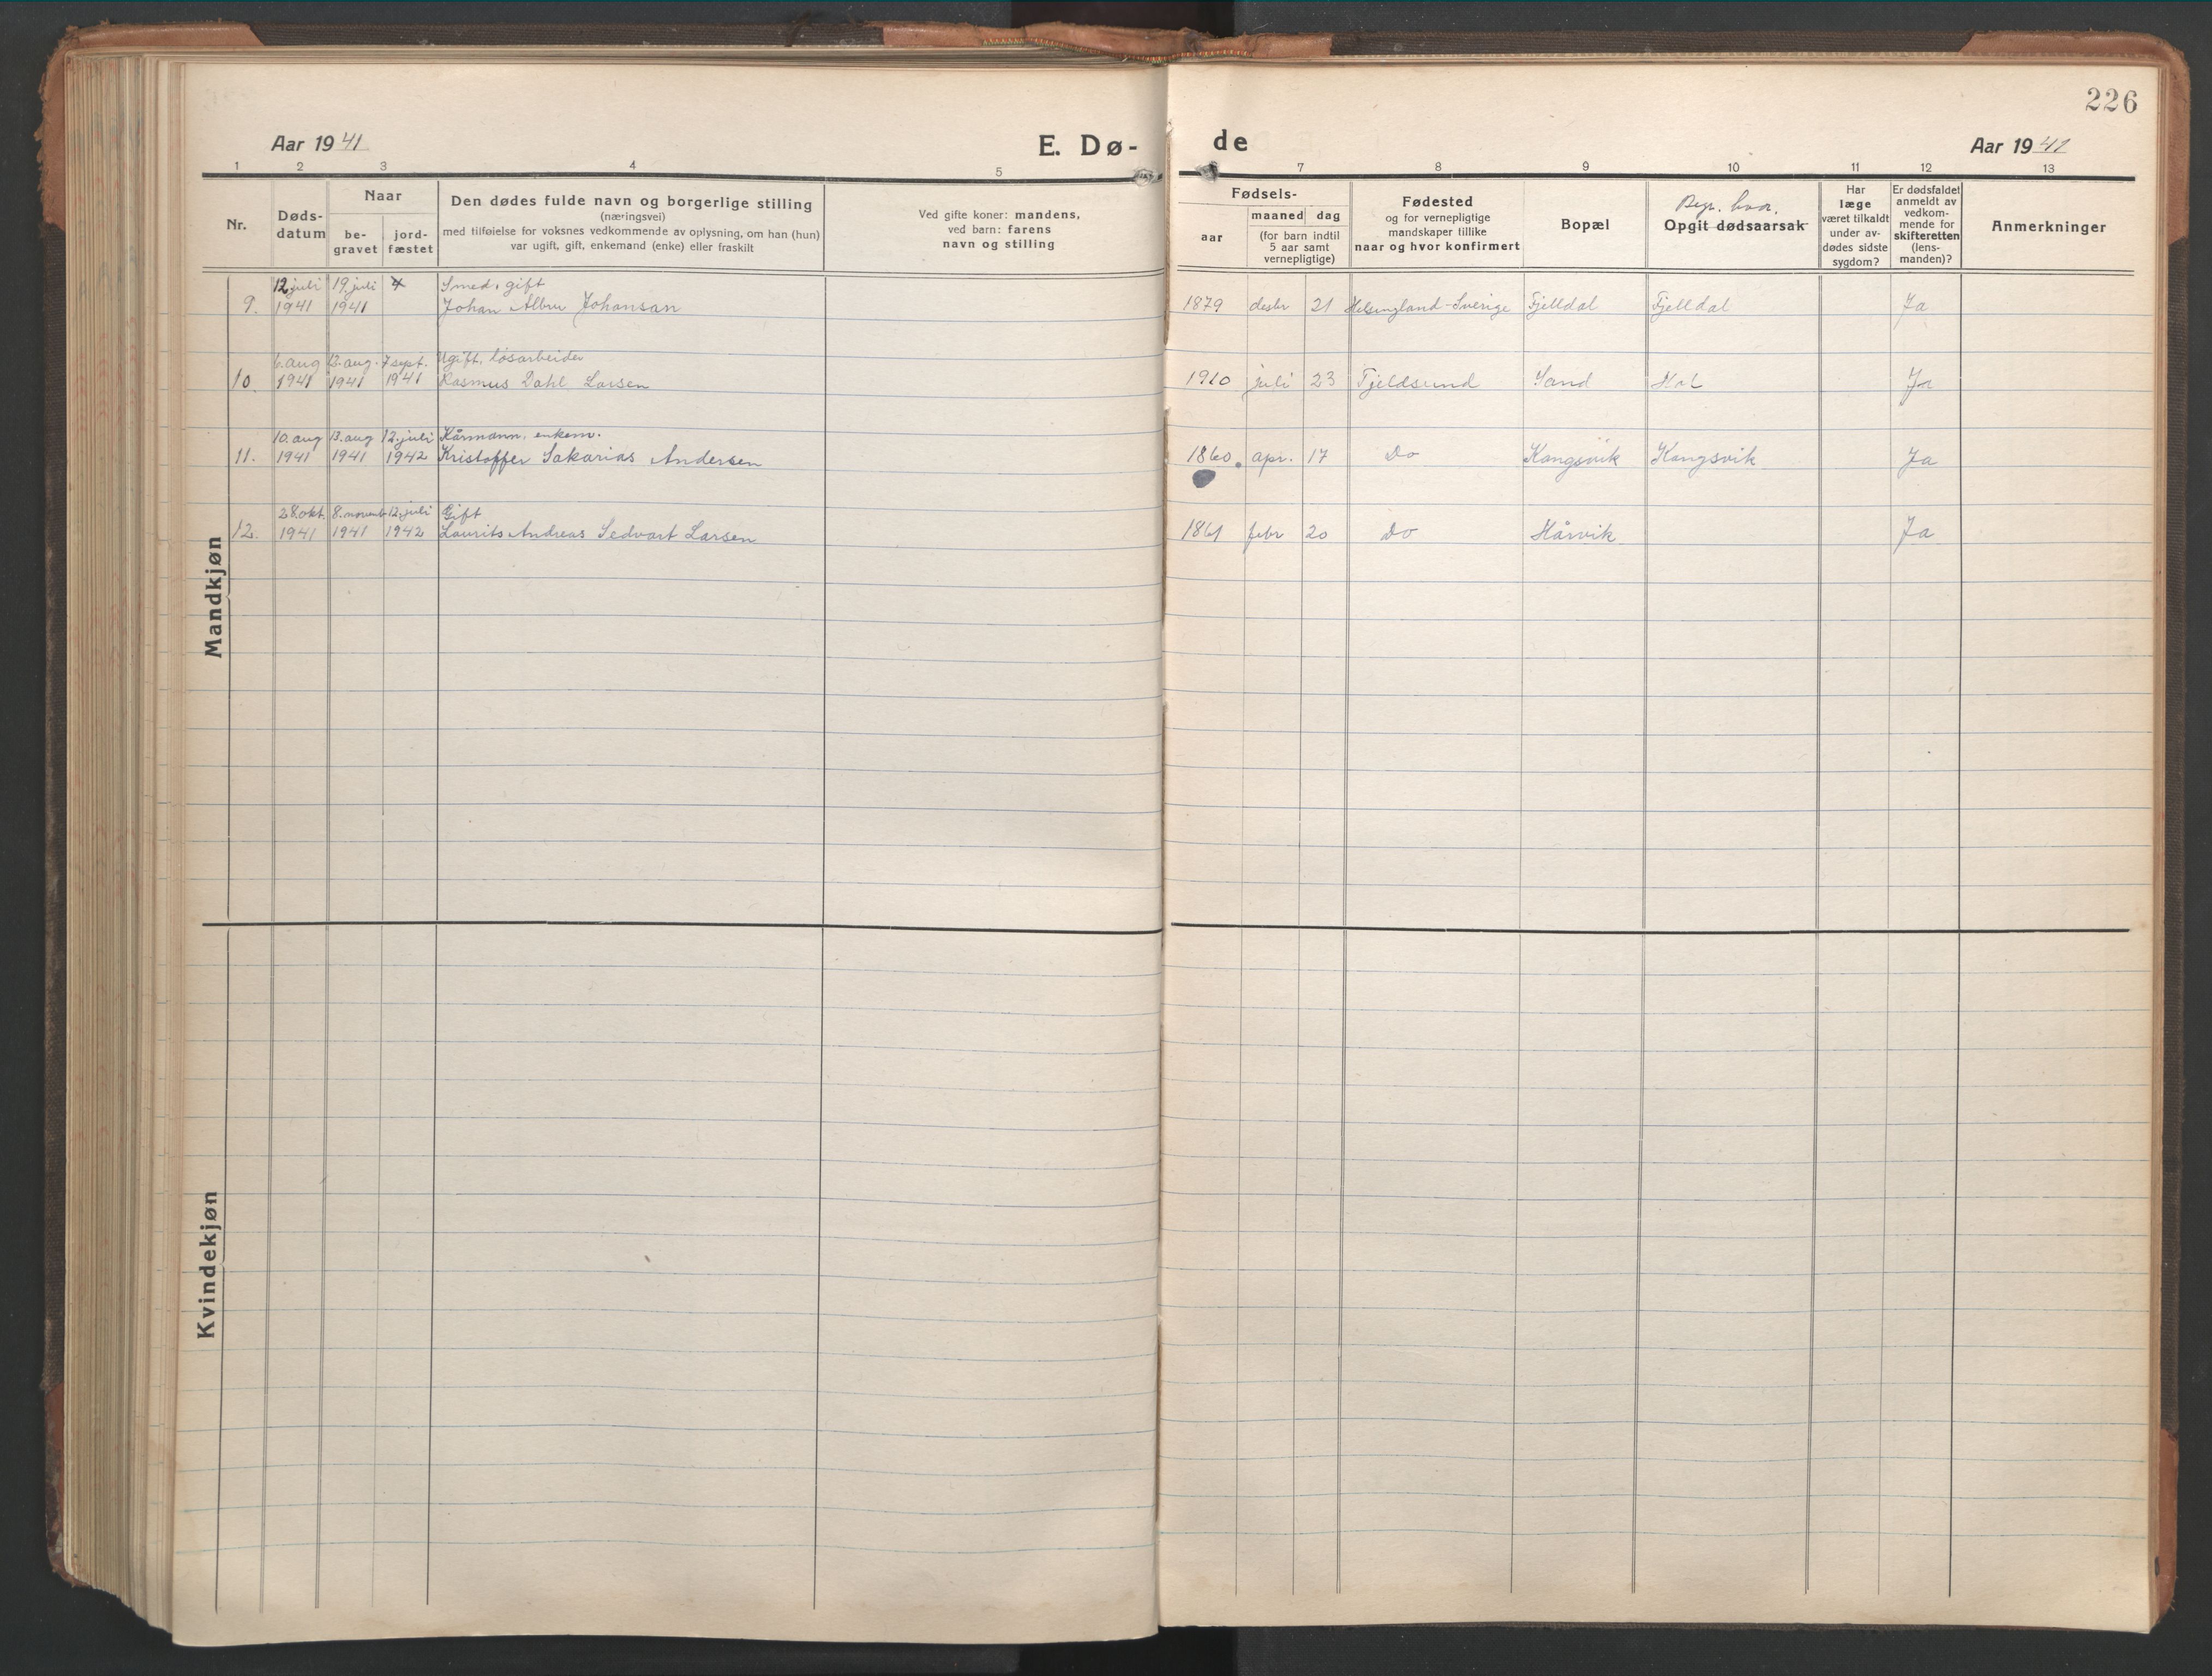 226
Aar 1941
E. Dø-
de
Aar 1941
1 2 3 4 5 7 8 9 10 11 12 13
Nr.
Døds-
datum
Naar
be-
gravet
jord-
fæstet
Den dødes fulde navn og borgerlige stilling
(næringsvei)
med tilføielse for voksnes vedkommende av oplysning, om han (hun)
var ugift, gift, enkemand (enke) eller fraskilt
Ved gifte koner: mandens,
ved barn: farens
navn og stilling
Fødsels-
aar
maaned dag
(for barn indtil
5 aar samt
vernepligtige)
Fødested
og for vernepligtige
mandskaper tillike
naar og hvor konfirmert
Bopæl
Begr. hvor.
Opgit dødsaarsak
Har
læge
været tilkaldt
under av-
dødes sidste
sygdom?
Er dødsfaldet
anmeldt av
vedkom-
mende for
skifteretten
(lens-
manden)?
Anmerkninger
Mandkjøn
12 juli 19. juli Smed, gift
9. 1941 1941 Johan Albru Johansan 1879 desbr 21 Helsingland-Sverige Fjelldal Fjelldal Ja
6. aug 12. aug. 7 sept. Ugift, løsarbeider
10. 1941 1941 1941 Rasmus Dahl Larsen 1910 juli 23 Fjeldsund Sand Hol Ja
10. aug 13. aug 12. juli Kårmann, enkem.
11. 1941 1941 1942 Kristoffer Sakarias Andersen 1860. apr. 17 Do Kongsvik Kongsvik Ja
28. okt. 8. novemb 12. juli Gift
12. 1941 1941 1942 Laurits Andreas Sedvart Larsen 1861 febr 20 Do Hårvik Ja
Kvindekjøn